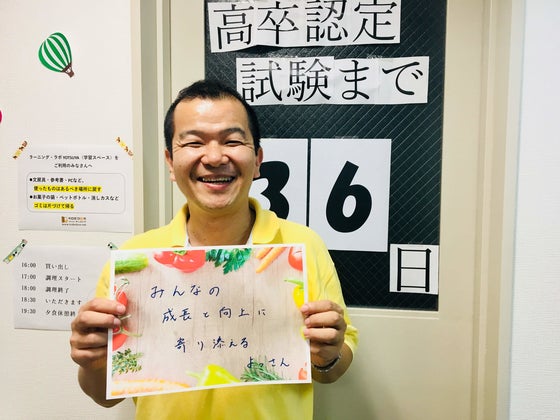 高卒認定
試験まで
36
日
ラーニング・ラボ YOTSUYA（学習スペース）を
ご利用のみなさんへ
●文房具・参考書・PCなど、
使ったものはあるべき場所に戻す
●お菓子の袋・ペットボトル・消しカスなど
ゴミは片づけて帰る
16:00 買い出し
17:00 調理スタート
18:00 調理終了
18:30 いただきます
19:30 夕食休憩終
みんなの
成長と向上に
寄り添える
よっさん